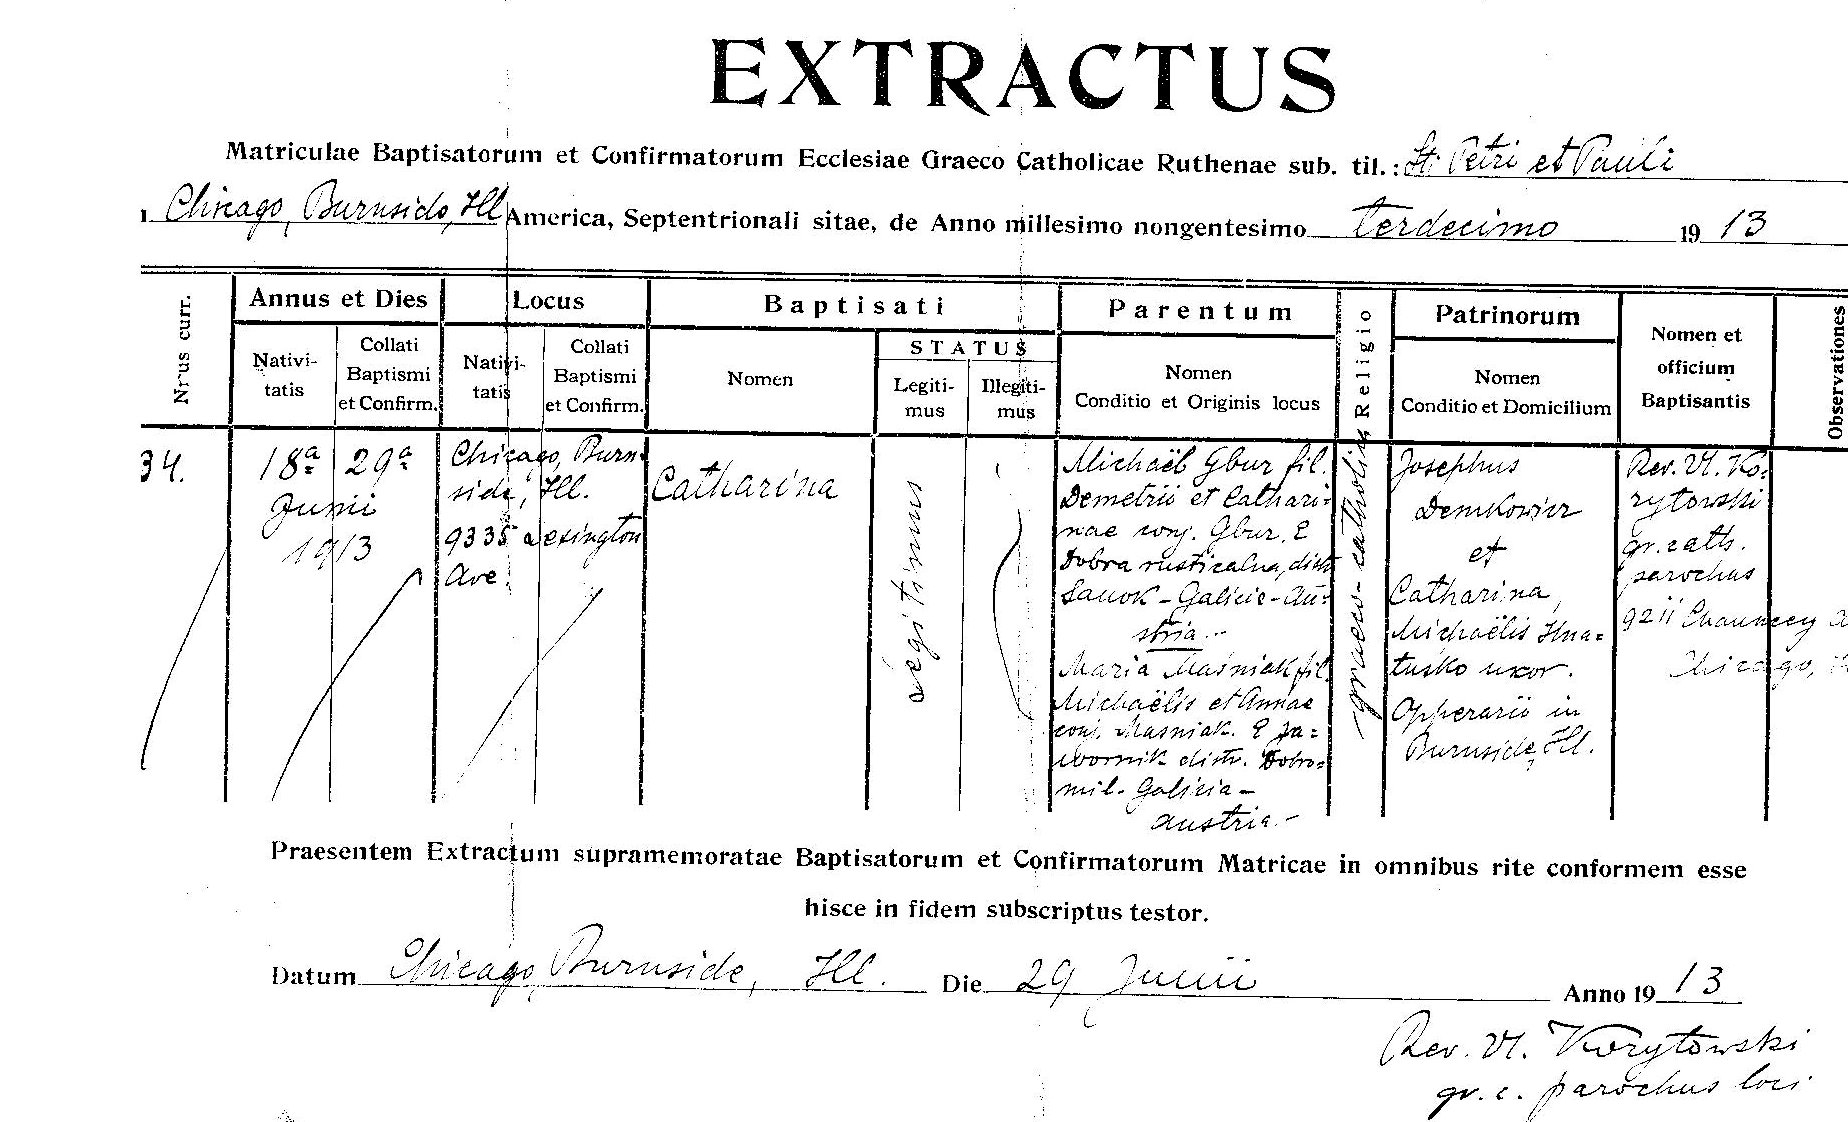 EXTRACTUS
Matriculae Baptisatorum et Confirmatorum Ecclesiae Graeco Catholicae Ruthenae sub. tit.: St. Petri et Pauli
Chicago, Burnside, Ill America, Septentrionali sitae, de Anno millesimo nongentesimo terdecimo 1913
Nrus curr.
Annus et Dies
Nativi-
tatis
Collati
Baptismi
et Confirm.
Locus
Nativi-
tatis
Collati
Baptismi
et Confirm.
Baptisati
Nomen
STATUS
Legiti-
mus
Illegiti-
mus
Parentum
Nomen
Conditio et Originis locus
Religio
Patrinorum
Nomen
Conditio et Domicilium
Nomen et
officium
Baptisantis
Observationes
34.
18a 29a
Junii
1913
Chicago, Burn-
side, Ill.
9335 Lexington
Ave.
Catharina
Legitimus
Michaël Gbur fil.
Demetrii et Cathari-
nae conj. Gbur. E
Dobra rusticalna, distr.
Sanok - Galicie - Au-
stria.-
Maria Maśniak fil.
Michaëlis et Annae
conj. Masniak. E Ja=
wornik distr. Dobro=
mil. Galicia -
Austria.-
graeco-catholica
Josephus
Demkowicz
et
Catharina,
Michaëlis Hna=
tusko uxor.
Opperarii in
Burnside, Ill.
Rev. Vl. Ko-
rytowski
gr. cath.
parochus
9211 Chauncey
Chicago,
Praesentem Extractum supramemoratae Baptisatorum et Confirmatorum Matricae in omnibus rite conformem esse
hisce in fidem subscriptus testor.
Datum Chicago, Burnside, Ill. Die 29 Junii Anno 1913
Rev. Vl. Korytowski
gr. c. parochus loci.